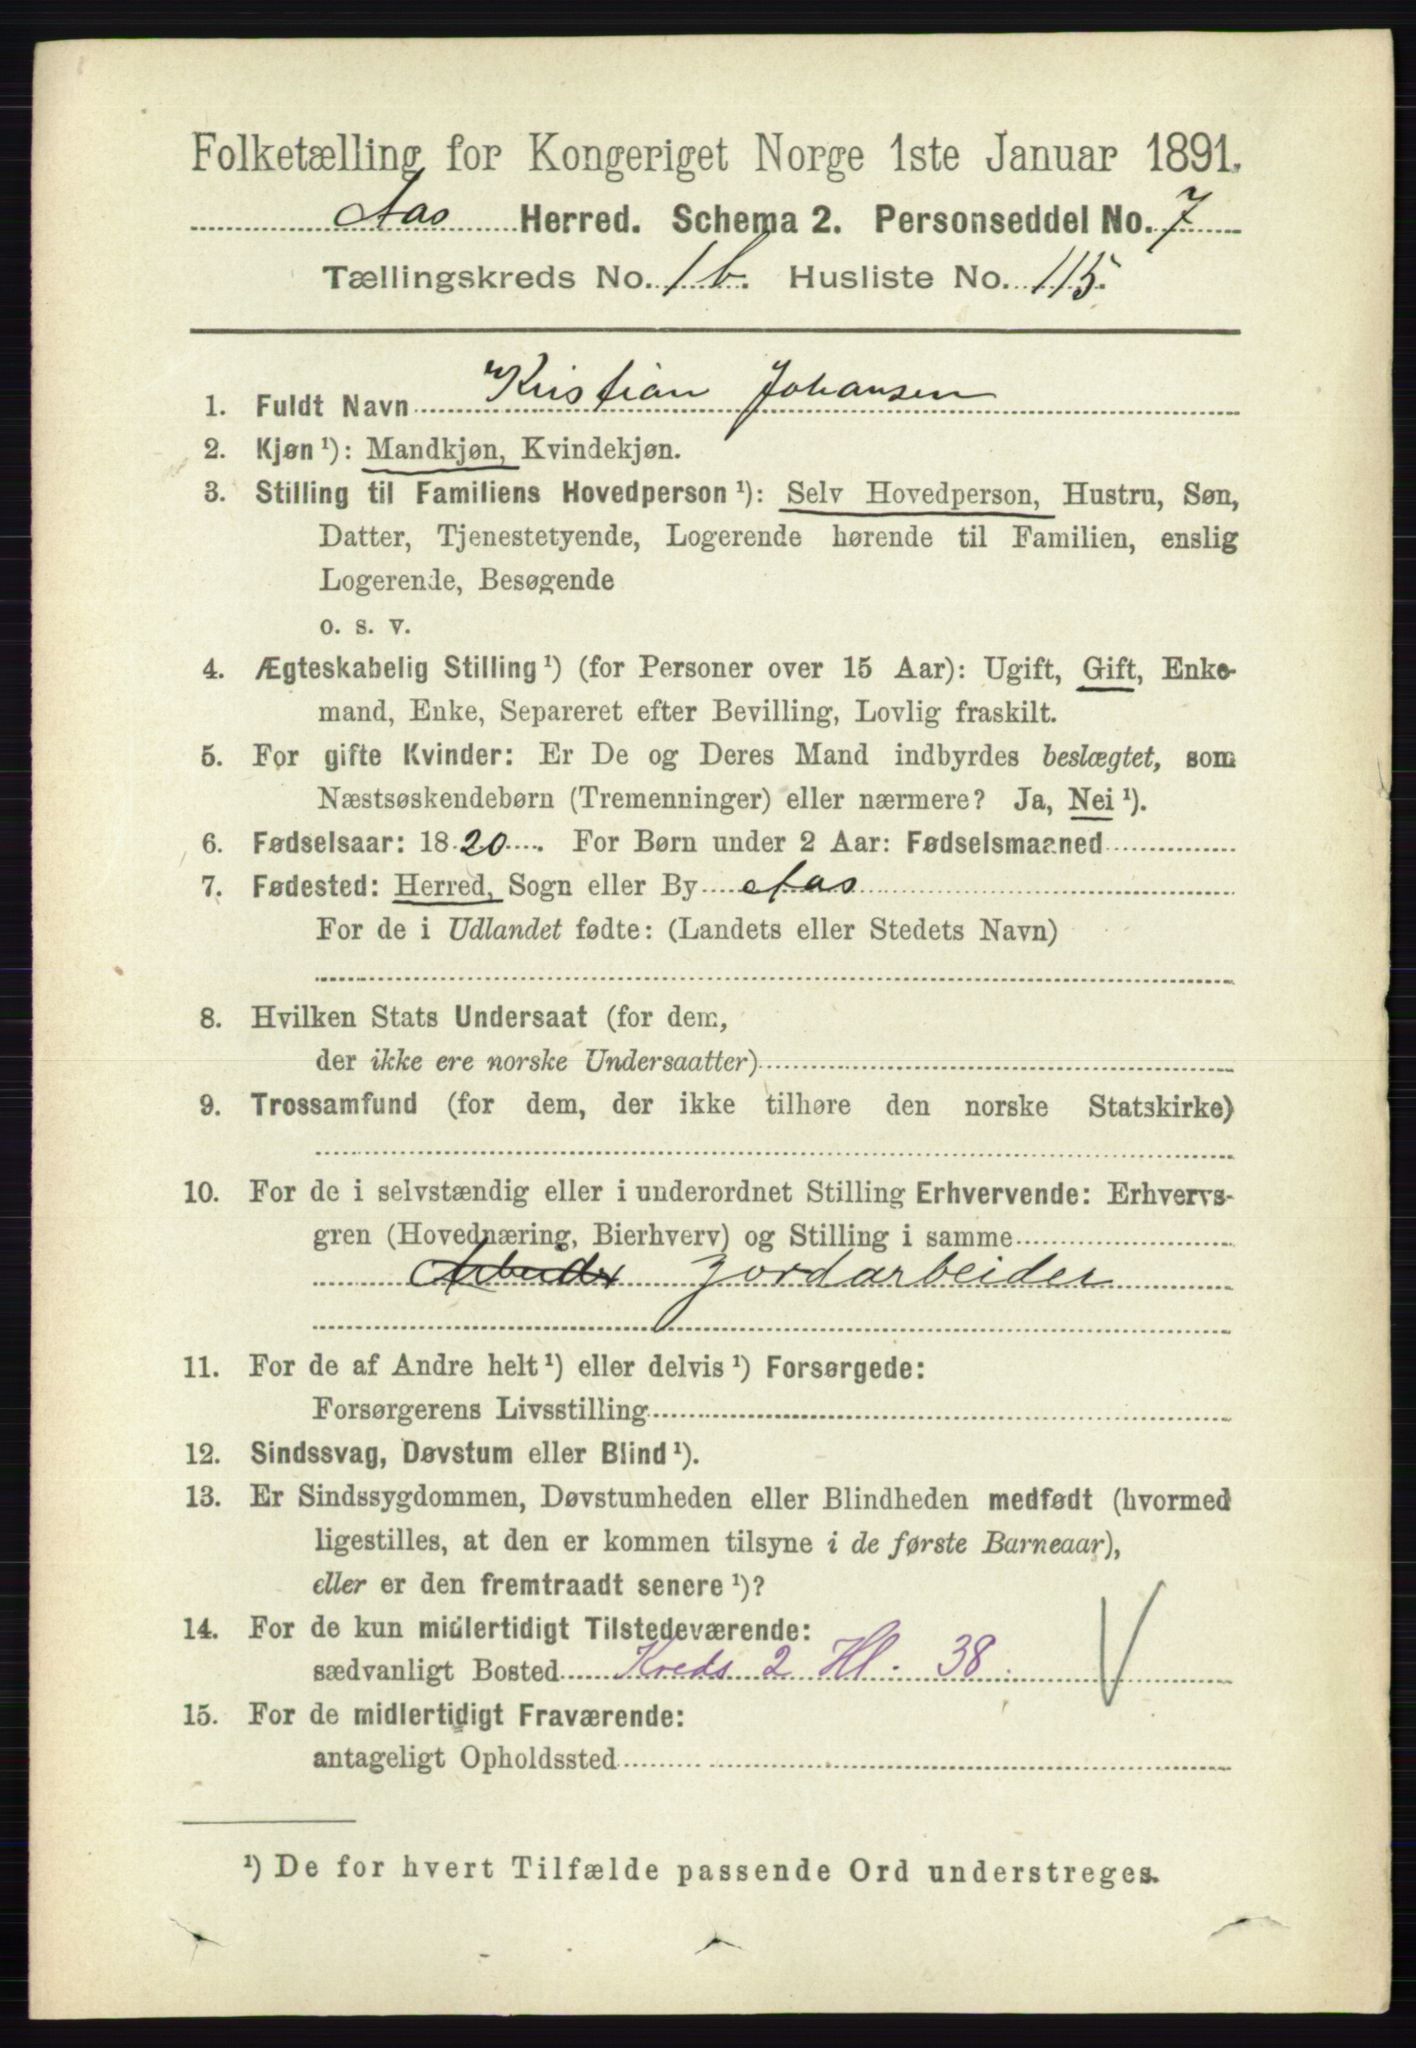 Folketælling for Kongeriget Norge 1ste Januar 1891.
Aas Herred. Schema 2. Personseddel No. 7
Tællingskreds No. 1b. Husliste No. 115.
1. Fuldt Navn Kristian Johansen
2. Kjøn ¹): Mandkjøn, Kvindekjøn.
3. Stilling til Familiens Hovedperson ¹): Selv Hovedperson, Hustru, Søn,
Datter, Tjenestetyende, Logerende hørende til Familien, enslig
Logerende, Besøgende
o. s. v.
4. Ægteskabelig Stilling ¹) (for Personer over 15 Aar): Ugift, Gift, Enke-
mand, Enke, Separeret efter Bevilling, Lovlig fraskilt.
5. For gifte Kvinder: Er De og Deres Mand indbyrdes beslægtet, som
Næstsøskendebørn (Tremenninger) eller nærmere? Ja, Nei ¹).
6. Fødselsaar: 1820. For Børn under 2 Aar: Fødselsmaaned
7. Fødested: Herred, Sogn eller By Aas
For de i Udlandet fødte: (Landets eller Stedets Navn)
8. Hvilken Stats Undersaat (for dem,
der ikke ere norske Undersaatter)
9. Trossamfund (for dem, der ikke tilhøre den norske Statskirke)
10. For de i selvstændig eller i underordnet Stilling Erhvervende: Erhvervs-
gren (Hovednæring, Bierhverv) og Stilling i samme
Arbeider Jordarbeider
11. For de af Andre helt ¹) eller delvis ¹) Forsørgede:
Forsørgerens Livsstilling
12. Sindssvag, Døvstum eller Blind ¹).
13. Er Sindssygdommen, Døvstumheden eller Blindheden medfødt (hvormed
ligestilles, at den er kommen tilsyne i de første Barneaar),
eller er den fremtraadt senere ¹)?
14. For de kun midlertidigt Tilstedeværende:
sædvanligt Bosted Kreds 2 Hl. 38 V
15. For de midlertidigt Fraværende:
antageligt Opholdssted
¹) De for hvert Tilfælde passende Ord understreges.